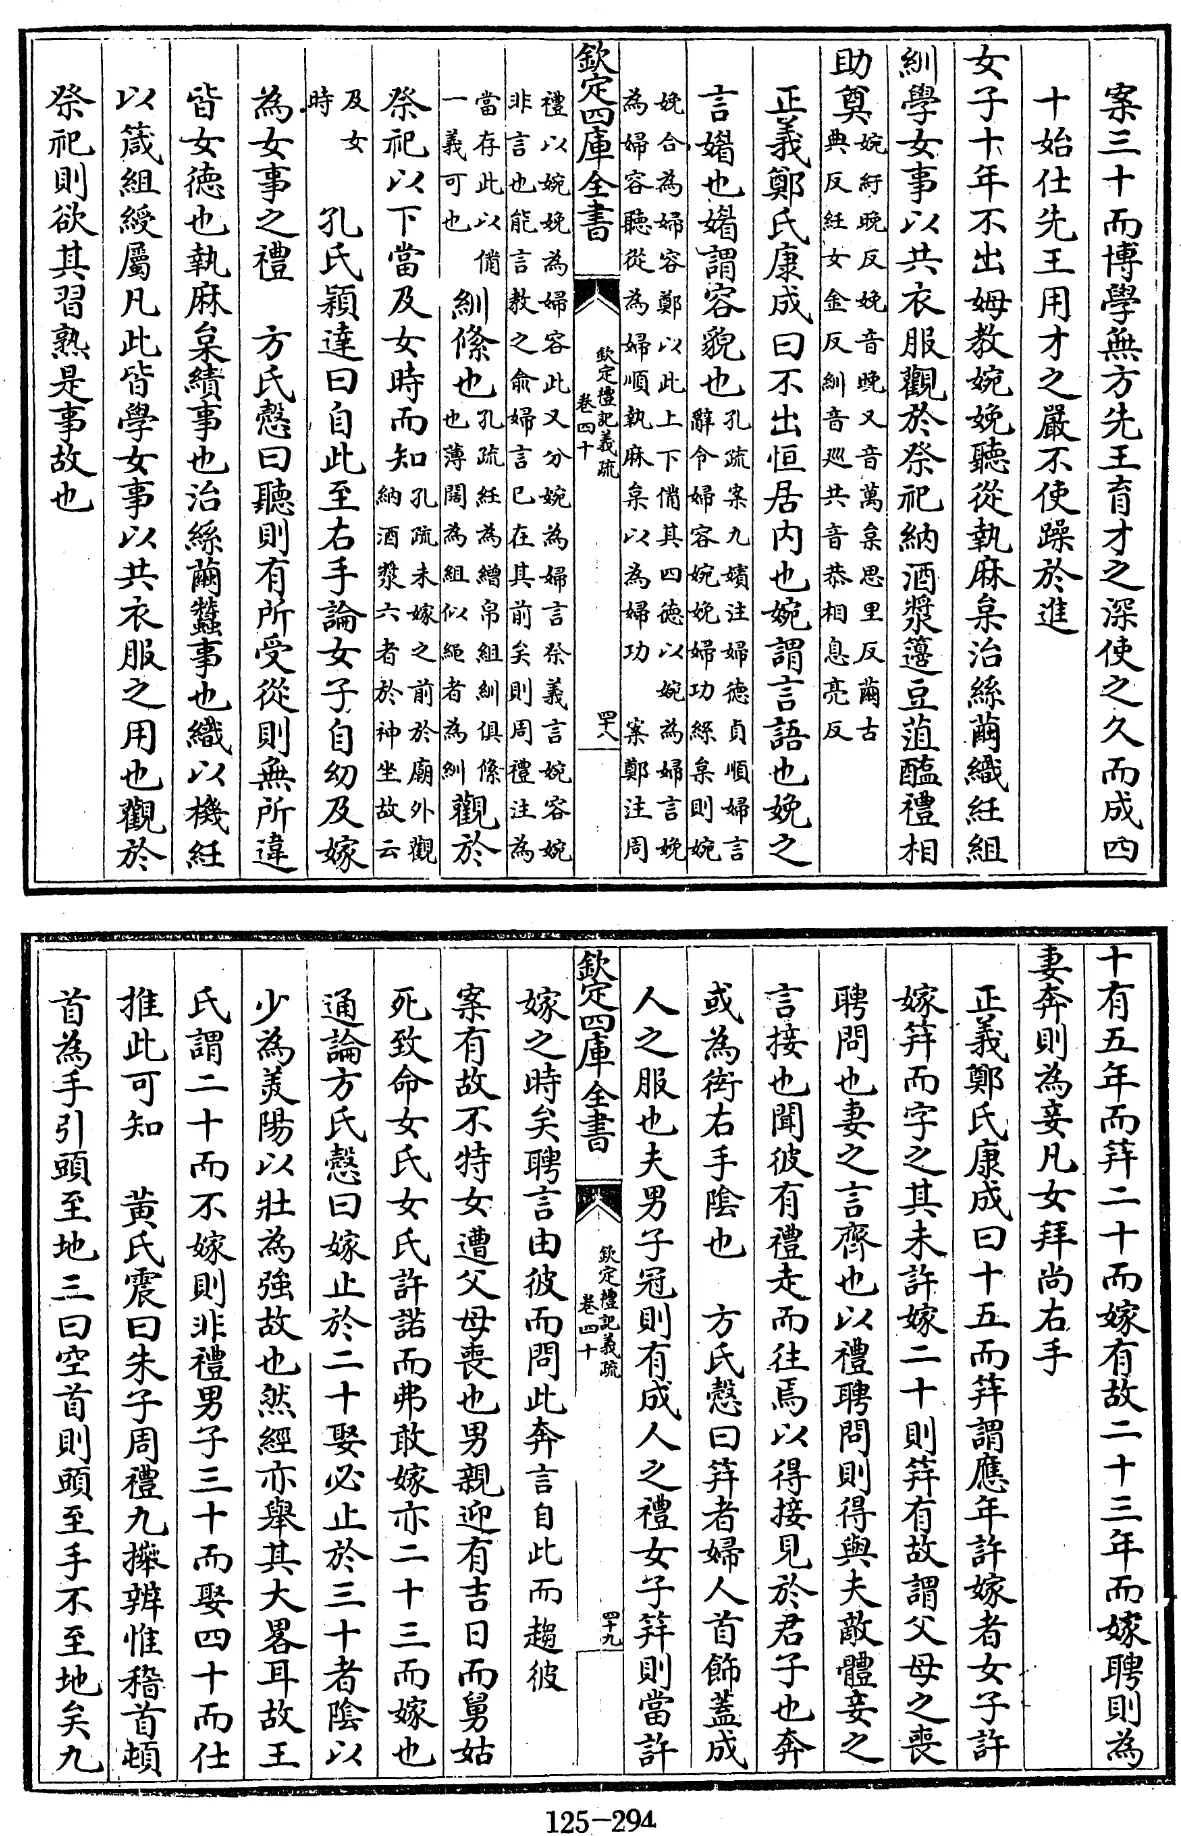 案三十而博學無方先王育才之深使之久而成四
十始仕先王用才之嚴不使躁於進
女子十年不出姆教婉娩聽從執麻枲治絲繭織紝組
紃學女事以共衣服觀於祭祀納酒漿籩豆菹醢禮相
助奠婉紆晚反娩音晚又音萬枲思里反繭古
典反紝女金反紃音巡共音恭相息亮反
正義鄭氏康成曰不出恒居内也婉謂言語也娩之
言媚也媚謂容貌也孔疏案九嬪注婦德貞順婦言
辭令婦容婉娩婦功絲枲則婉
娩合為婦容鄭以此上下備其四徳以婉為婦言娩
為婦容聽從為婦順執麻枲以為婦功 案鄭注周
欽定四庫全書
欽定禮記義疏
卷四十
四十八
禮以婉娩為婦容此又分婉為婦言祭義言婉容婉
非言也能言教之俞婦言已在其前矣則周禮注為
當存此以備
一義可也
紃絛也孔疏紝為繒帛組紃俱絛
也薄闊為組似繩者為紃觀於
祭祀以下當及女時而知孔疏未嫁之前於廟外觀
納酒漿六者於神坐故云
及女
時
孔氏穎達曰自此至右手論女子自幼及嫁
為女事之禮 方氏慤曰聽則有所受從則無所違
皆女徳也執麻枲績事也治絲繭蠶事也織以機紝
以箴組綬屬凡此皆學女事以共衣服之用也觀於
祭祀則欲其習熟是事故也
十有五年而筓二十而嫁有故二十三年而嫁聘則為
妻奔則為妾凡女拜尚右手
正義鄭氏康成曰十五而筓謂應年許嫁者女子許
嫁筓而字之其未許嫁二十則筓有故謂父母之喪
聘問也妻之言齊也以禮聘問則得與夫敵體妾之
言接也聞彼有禮走而往焉以得接見於君子也奔
或為衒右手陰也 方氏慤曰筓者婦人首飾蓋成
人之服也夫男子冠則有成人之禮女子筓則當許
欽定四庫全書
欽定禮記義疏
卷四十
四十九
嫁之時矣聘言由彼而問此奔言自此而趨彼
案有故不特女遭父母喪也男親迎有吉日而舅姑
死致命女氏女氏許諾而弗敢嫁亦二十三而嫁也
通論方氏慤曰嫁止於二十娶必止於三十者陰以
少為羙陽以壯為強故也然經亦舉其大畧耳故王
氏謂二十而不嫁則非禮男子三十而娶四十而仕
推此可知 黄氏震曰朱子周禮九𢷎辨惟稽首頓
首為手引頭至地三曰空首則頭至手不至地矣九
125-294